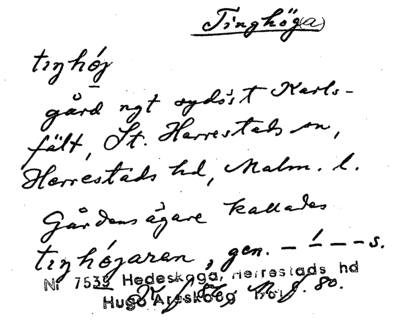 Tinghög(a)
tıŋhǿj
gård ngt sydöst Karls-
fält, St. Herrestads sn,
Herrestads hd, Malm. l.
Gårdens ägare kallades
tıŋhǿjaren, gen. – ᷄ – – – s.
Nr 7539 Hedeskoga, Herrestads hd
Hugo Areskoog
80.